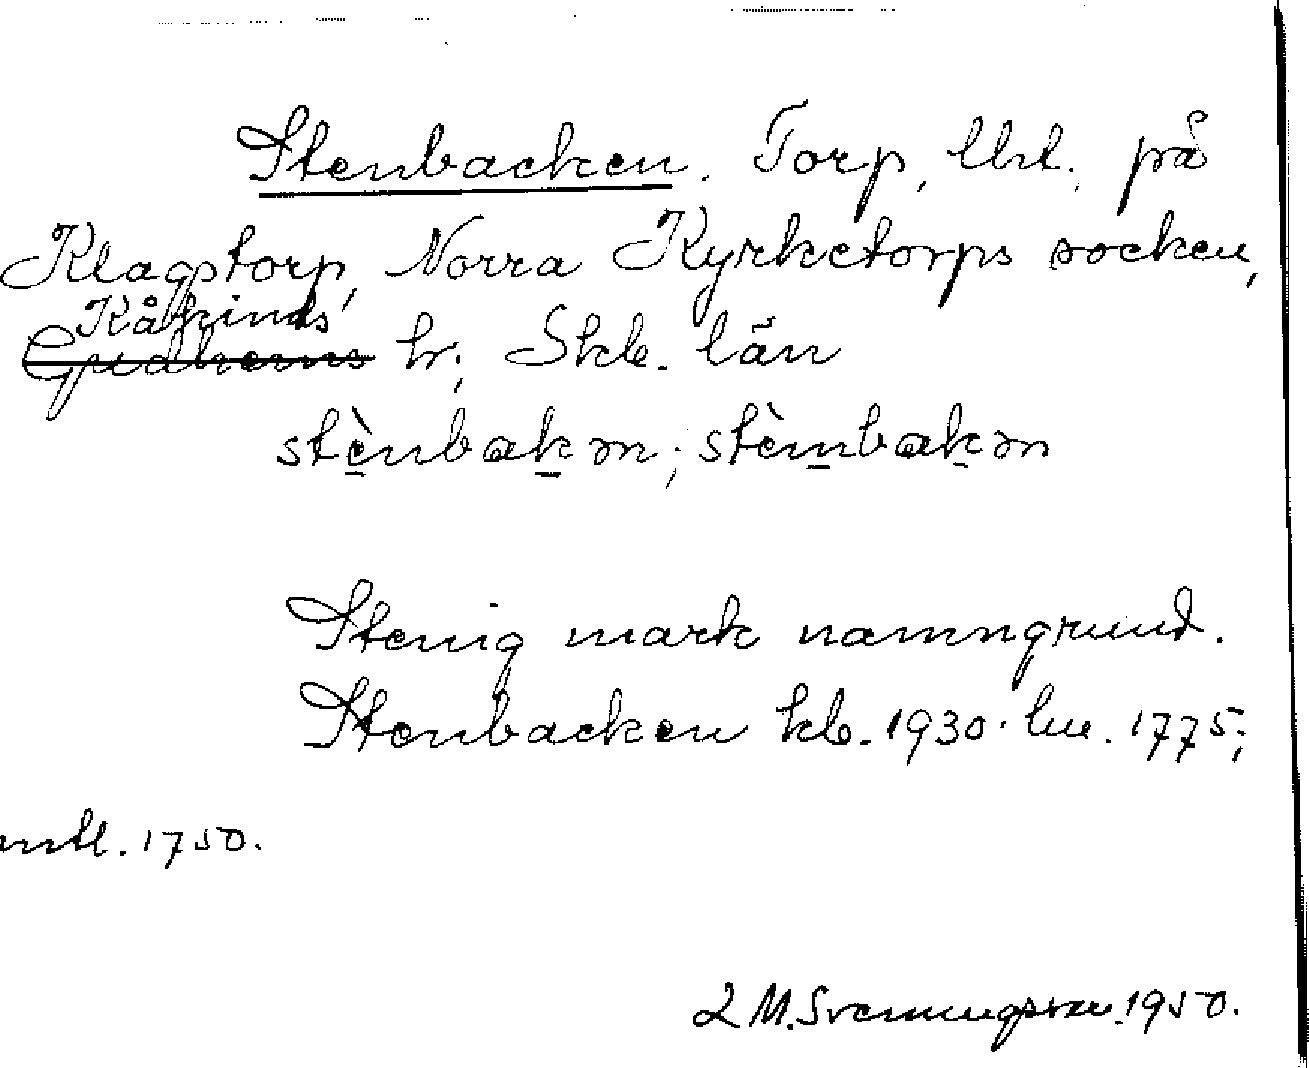 Stenbacken. Torp, lht. på
Klagstorp, Norra Kyrketorps socken,
Kåkinds
Gudhems hr; Skb. län
stènbakən; stèmbakən
Stenig mark namngrund.
Stenbacken kb. 1930. hu. 1775;
mtl. 1750.
L M. Svenungsson. 1950.